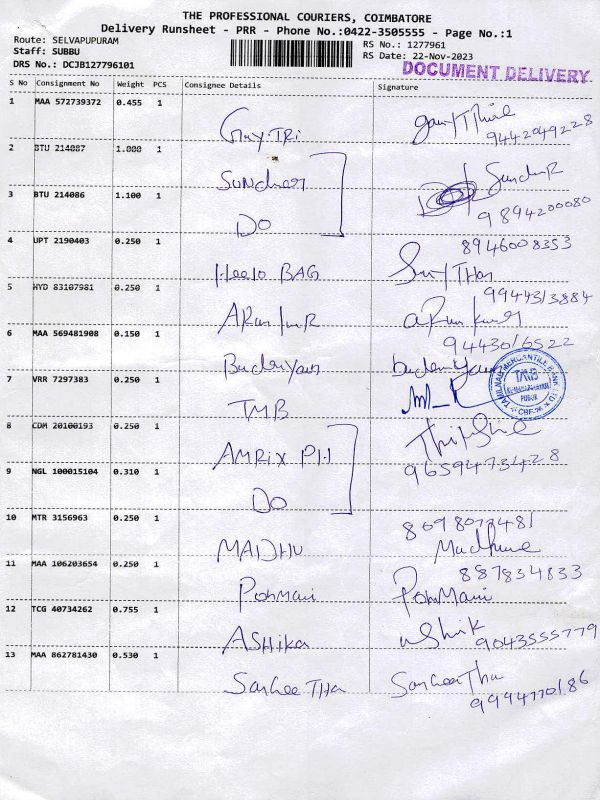 THE PROFESSIONAL COURIERS, COIMBATORE
Delivery Runsheet - PRR - Phone No.:0422-3505555 - Page No.:1
Route: SELVAPUPURAM
Staff: SUBBU
DRS No.: DCJB127796101
RS No.: 1277961
RS Date: 22-Nov-2023
DOCUMENT DELIVERY
S No Consignment No Weight PCS Consignee Details Signature
1 MAA 572739372 0.455 1
9442049228
2 BTU 214087 1.000 1
3 BTU 214086 1.100 1 DO
9894200080
4 UPT 2190403 0.250 1 Heelo BAG
8946008353
5 HYD 83107981 0.250 1
9944313884
6 MAA 569481908 0.150 1
9443016522
7 VRR 7297383 0.250 1 TMB
TAMILNAD MERCANTILE BANK LTD
TMB
CBE
8 CDM 20100193 0.250 1 AMRIX PH
9659473428
9 NGL 100015104 0.310 1 DO
10 MTR 3156963 0.250 1 MADHU
11 MAA 106203654 0.250 1 PonMani PonMani
887834833
12 TCG 40734262 0.755 1 ASHIKA
9043555779
13 MAA 862781430 0.530 1 SangeeTHa
9994770186